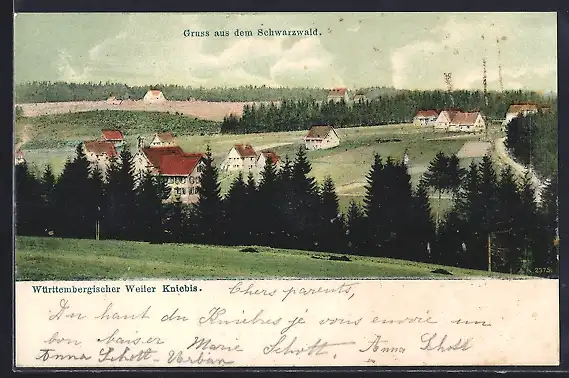 Gruss aus dem Schwarzwald.
2575.
Württembergischer Weiler Kniebis.
Chers parents,
Du haut du Kniebis je vous envoie un
bon baiser Marie Schott, Anna Schott
Anna Schott-Vorbau